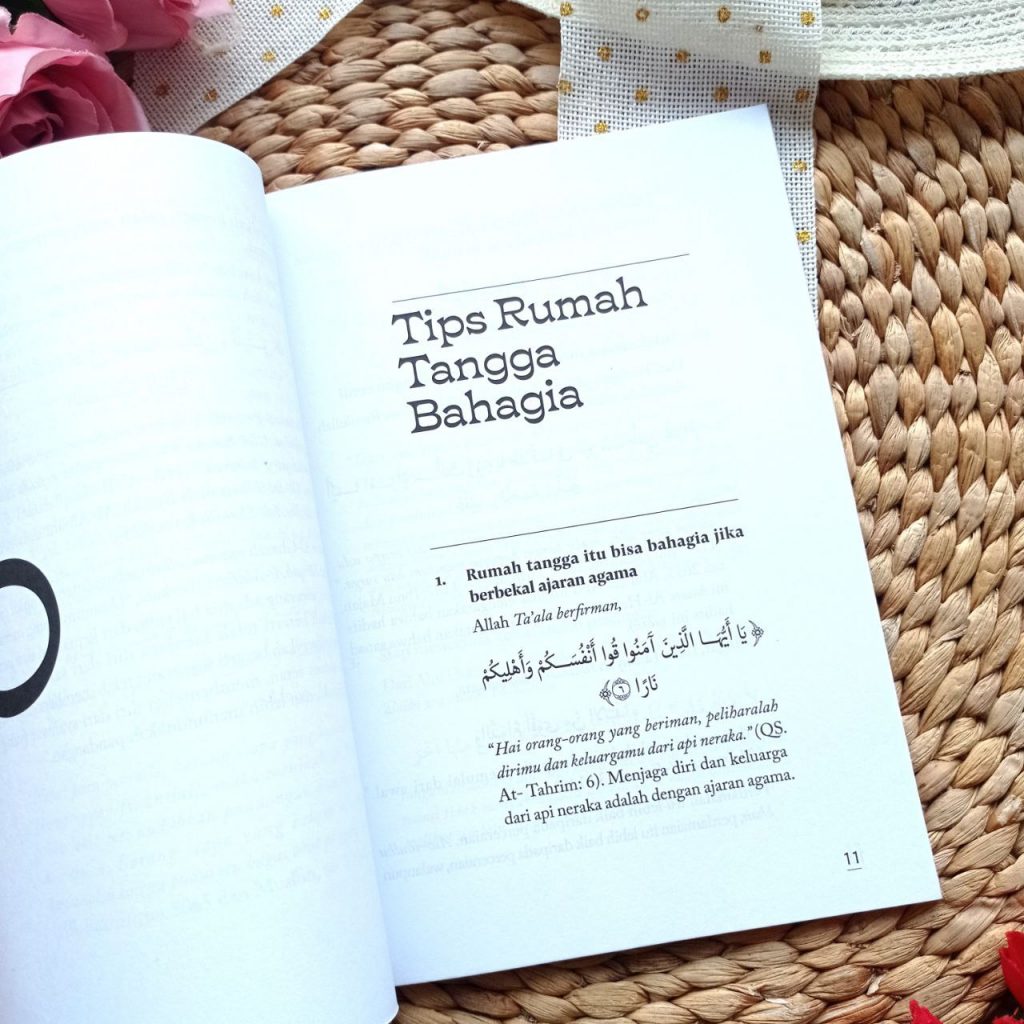 Tips Rumah
Tangga
Bahagia
1. Rumah tangga itu bisa bahagia jika
berbekal ajaran agama
Allah Ta'ala berfirman,
﴿ يَا أَيُّهَا الَّذِينَ آمَنُوا قُوا أَنْفُسَكُمْ وَأَهْلِيكُمْ
نَارًا ۝٦ ﴾
“Hai orang-orang yang beriman, peliharalah
dirimu dan keluargamu dari api neraka.”(QS.
At- Tahrim: 6). Menjaga diri dan keluarga
dari api neraka adalah dengan ajaran agama.
11